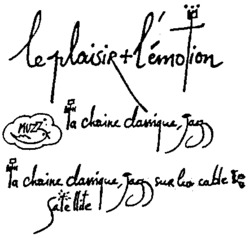 le plaisir + l'émotion
MUZZIK
la chaine classique, jazz
la chaine classique, jazz sur les cable &
satellite